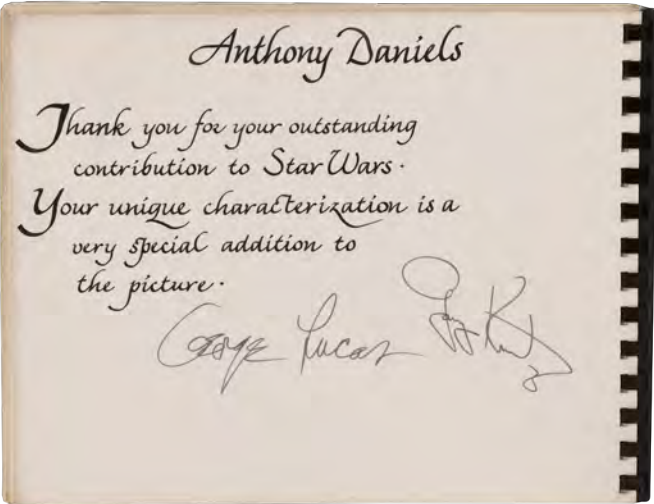 Anthony Daniels
Thank you for your outstanding
contribution to Star Wars.
Your unique characterization is a
very special addition to
the picture.
George Lucas Gary Kurtz